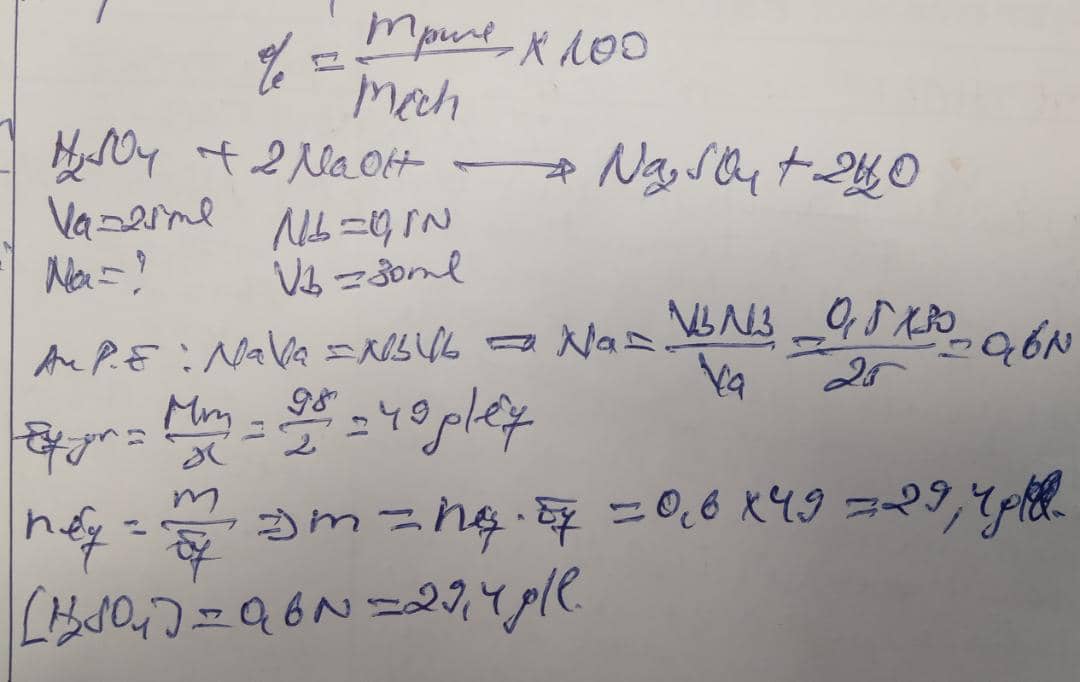 % = m pure / Mech × 100
H₂SO₄ + 2NaOH → Na₂SO₄ + 2H₂O
Va = 25ml Nb = 0,5N
Na = ? Vb = 30ml
Au P.E : NaVa = NbVb ⇒ Na = VbNb / Va = 0,5 × 30 / 25 = 0,6N
Eq-gr = Mm / x = 98 / 2 = 49 g/éq
néq = m / Eq ⇒ m = néq . Eq = 0,6 × 49 = 29,4 g/l.
[H₂SO₄] = 0,6N = 29,4 g/l.